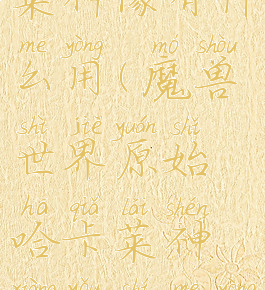 me yòng mó shòu
么用(魔兽
shì jiè yuán shǐ
世界原始
hā qiǎ lái shén
哈卡莱神